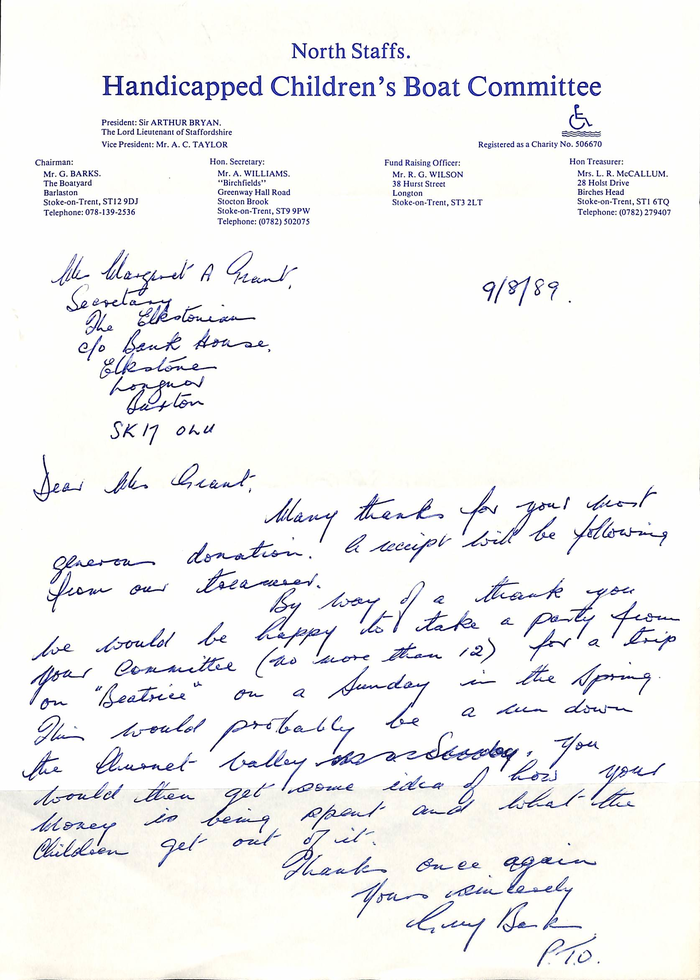 North Staffs.
Handicapped Children's Boat Committee
President: Sir ARTHUR BRYAN.
The Lord Lieutenant of Staffordshire
Vice President: Mr. A. C. TAYLOR
Registered as a Charity No. 506670
Chairman:
Mr. G. BARKS.
The Boatyard
Barlaston
Stoke-on-Trent, ST12 9DJ
Telephone: 078-139-2536
Hon. Secretary:
Mr. A. WILLIAMS.
"Birchfields"
Greenway Hall Road
Stocton Brook
Stoke-on-Trent, ST9 9PW
Telephone: (0782) 502075
Fund Raising Officer:
Mr. R. G. WILSON
38 Hurst Street
Longton
Stoke-on-Trent, ST3 2LT
Hon Treasurer:
Mrs. L. R. McCALLUM.
28 Holst Drive
Birches Head
Stoke-on-Trent, ST1 6TQ
Telephone: (0782) 279407
Margaret A Grant,
9/8/89.
Secretary
The Elkstonian
c/o Bank House,
Elkstone
Longnor
Buxton
SK17 0LU
Dear Mrs Grant,
Many thanks for your most
generous donation. A receipt will be following
from our treasurer.
By way of a thank you
we would be happy to take a party from
your Committee (no more than 12) for a trip
on "Beatrice" on a Sunday in the Spring.
This would probably be a run down
the Churnet Valley. You
would then get some idea of how your
money is being spent and what the
Children get out of it.
Thanks once again
Yours sincerely
P.T.O.